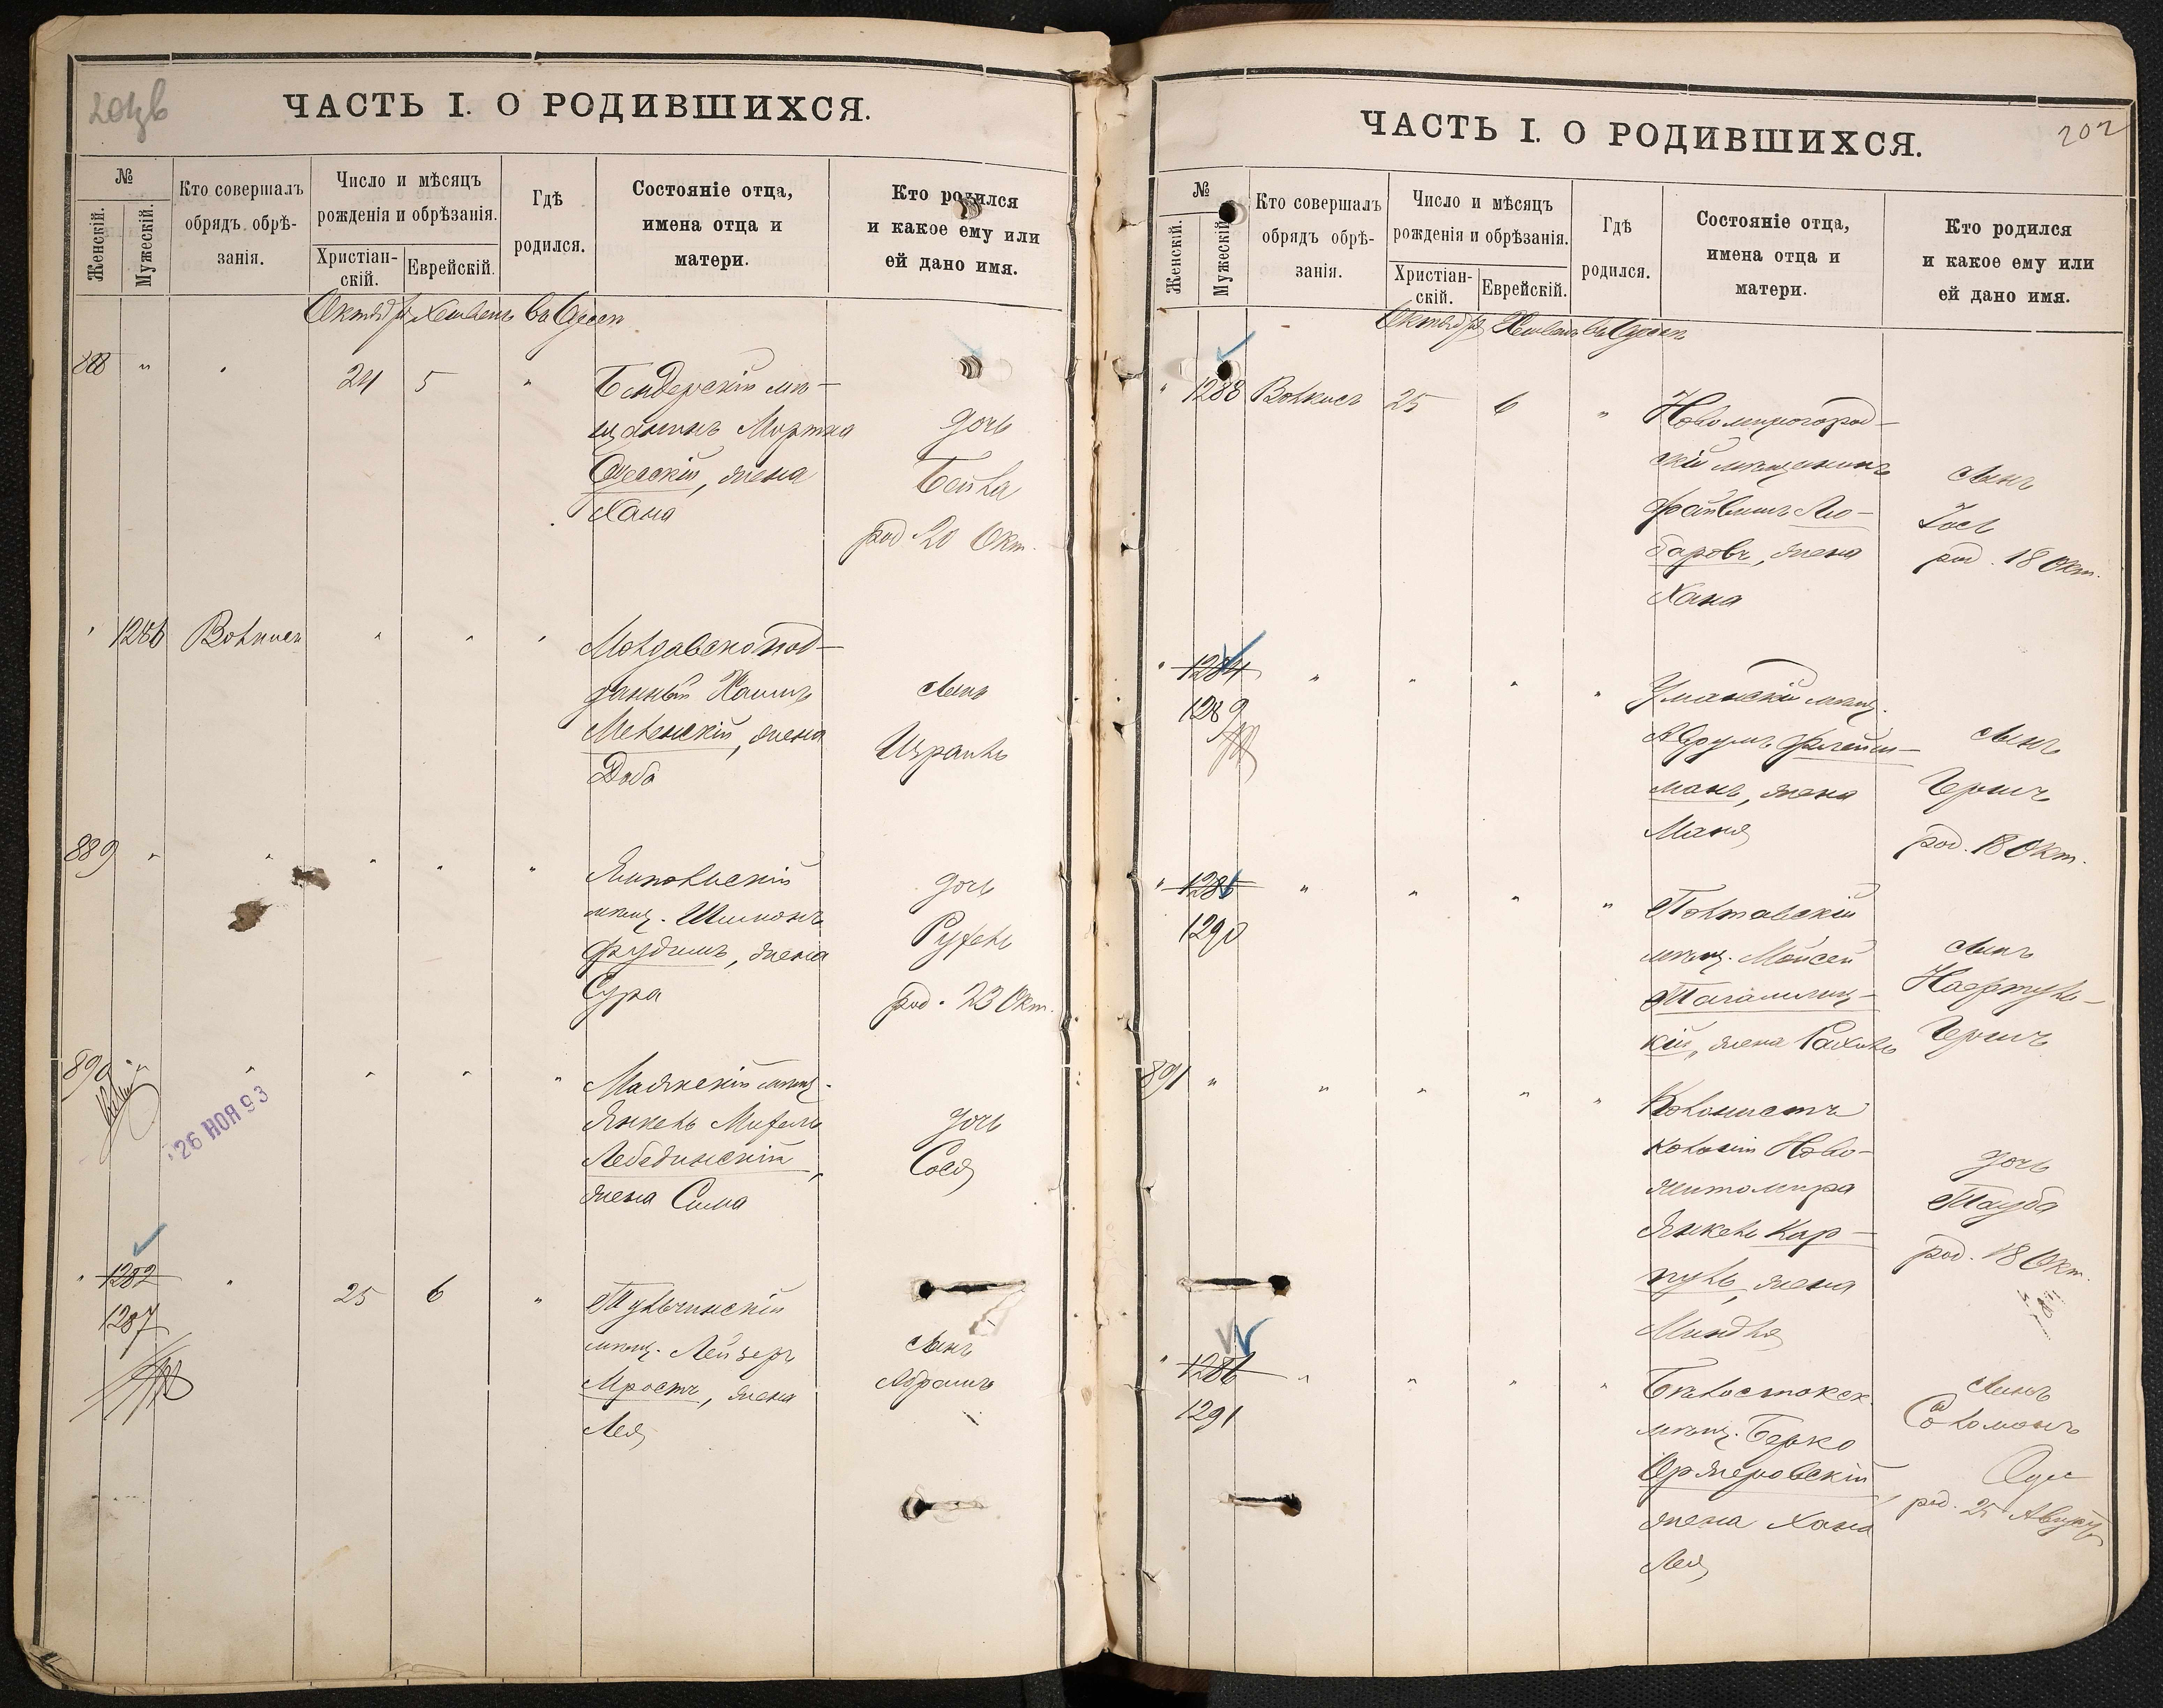 ЧАСТЬ I. О РОДИВШИХСЯ.
№
Женскій.
Мужескій.
Кто совершалъ
обрядъ обрѣ-
занія.
Число и мѣсяцъ
рожденія и обрѣзанія.
Христіан-
скій.
Еврейскій.
Гдѣ
родился.
Состояніе отца,
имена отца и
матери.
Кто родился
и какое ему или
ей дано имя.
Октября Хешвенъ въ Одессѣ
888 " " 24 5 "
Бендерскій мѣ-
щанинъ Мортка
Одесскій, жена
Хана
дочь
Бейла
род. 20 Окт.
" 1286 Волкисъ " " "
Молдавскоподд-
данный Хаимъ
Меленскій, жена
Доба
сынъ
Израиль
889 " " " " "
Ямпольскій
мѣщ. Шимонъ
Фудимъ, жена
Сура
дочь
Рухель
род. 23 Окт.
890 " " " " "
26 НОЯ 93
Маякскій мѣщ.
Янкель Михель
Лебединскій,
жена Сима
дочь
Сося
" 1282
1287
" 25 6 "
Тульчинскій
мѣщ. Лейзеръ
Мростъ, жена
Лея
сынъ
Абрамъ
202
ЧАСТЬ I. О РОДИВШИХСЯ.
№
Женскій.
Мужескій.
Кто совершалъ
обрядъ обрѣ-
занія.
Число и мѣсяцъ
рожденія и обрѣзанія.
Христіан-
скій.
Еврейскій.
Гдѣ
родился.
Состояніе отца,
имена отца и
матери.
Кто родился
и какое ему или
ей дано имя.
Октября Хешвенъ въ Одессѣ
" 1288 Волкисъ 25 6 "
Новомиргород-
скій мѣщанинъ
Файвишъ Лю-
баровъ, жена
Хана
сынъ
Іось
род. 18 Окт.
" 1284
1289
" " " "
Уманскій мѣщ.
Аврумъ Флейш-
манъ, жена
Маня
сынъ
Гершъ
род. 18 Окт.
" 1285
1290
" " " "
Полтавскій
мѣщ. Мойсей
Тагамлиц-
кій, жена Рахиль
сынъ
Нафтуль-
Гершъ
891 " " " " "
Колонистъ
колоніи Ново-
житомира
Янкель Кар-
пуль, жена
Миндля
дочь
Тауба
род. 18 Окт.
" 1286
1291
" " " "
Бѣлостокск.
мѣщ. Берко
Оржеровскій,
жена Хана
Лея
сынъ
Соломонъ
род. 25 Августа